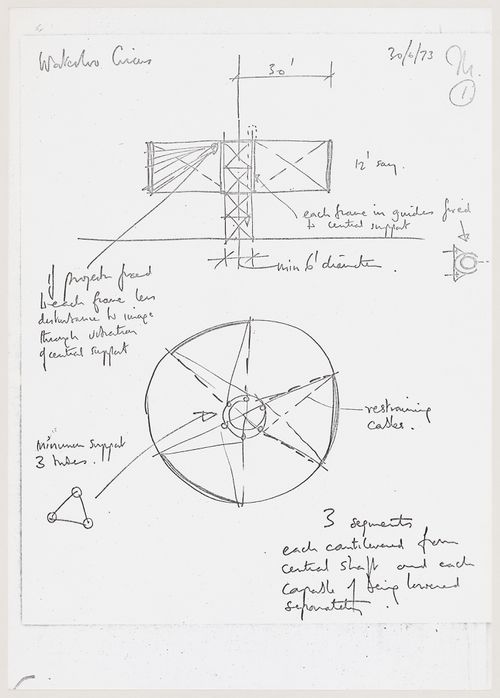 Waterloo Circus
30/6/73
1
30'
12' say.
each frame in guides fixed
to central support
min 6' diameter.
if projector fixed
to each frame less
disturbance to image
through vibration
of central support
restraining
cables.
minimum support
3 tubes.
3 segments
each cantilevered from
central shaft and each
capable of being lowered
separately.